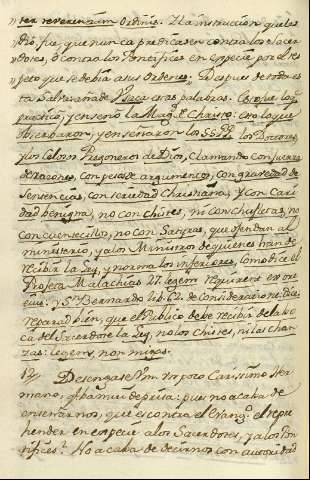 ter reverentiam Ordinis. Ila instruccion que les
dio, fue que nunca predicasen contra los Sacer
dotes, ò contra los Pontifices en especie por el res
peto que se debia a sus Ordenes. Despues de todo es
to palabras. Con que lo
practicò, y enseñò la Magd. de Christo. Con lo que
observaron, y enseñaron los SS. PP. los Doctores,
y los Celosos Pregoneros de Dios, clamando con fuerza
de razones, con peso de argumentos, con gravedad de
Sentencias, con seriedad Christiana, y con cari
dad benigna, no con chistes, ni con chufletas, no
con cuentecillos, no con Satyras, que ofendan al
ministerio, y a los Ministros de quienes han de
recibir la Ley, y norma los inferiores, como dice el
Profeta Malachias 2.7. legem requirent ex ore
eius: y Sn. Bernardo lib. C2. de Consideratione:
que el Publico debe recibir de la bo
ca del Sacerdote la Ley, no los chistes, ni las chan
zas: legem, non nugas.
12 Desengañese Vm. un poco Carisimo Her
mano, de prisa: pues no acaba de
enseñarnos, que es contra el Evango. el repre
hender en especie a los Sacerdotes, y a los Pon
tifices? No acaba de decirnos con autoridad